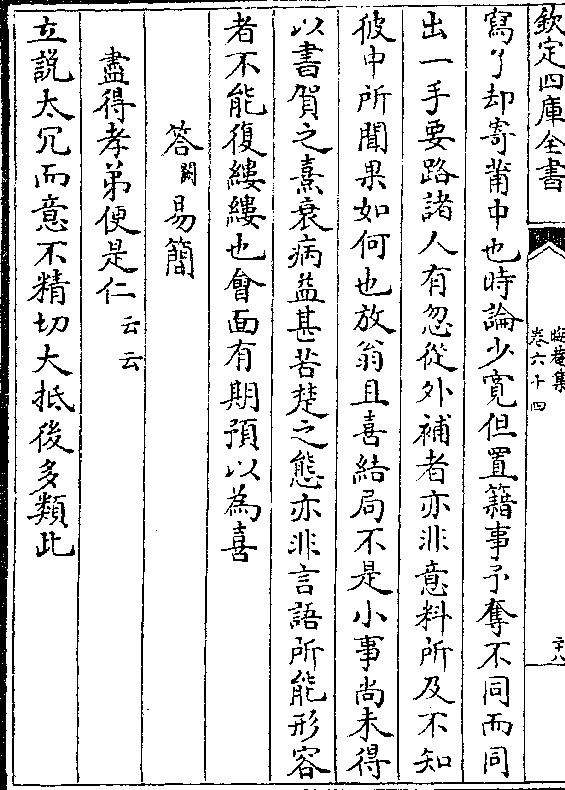 欽定四庫全書
晦菴集
卷六十四
二十八
寫了却寄莆中也時論少寛但置籍事予奪不同而同
出一手要路諸人有忽從外補者亦非意料所及不知
彼中所聞果如何也放翁且喜結局不是小事尚未得
以書賀之熹衰病益甚苦楚之態亦非言語所能形容
者不能復縷縷也㑹面有期預以為喜
答闕易簡
盡得孝弟便是仁云云
立説太冗而意不精切大抵後多類此